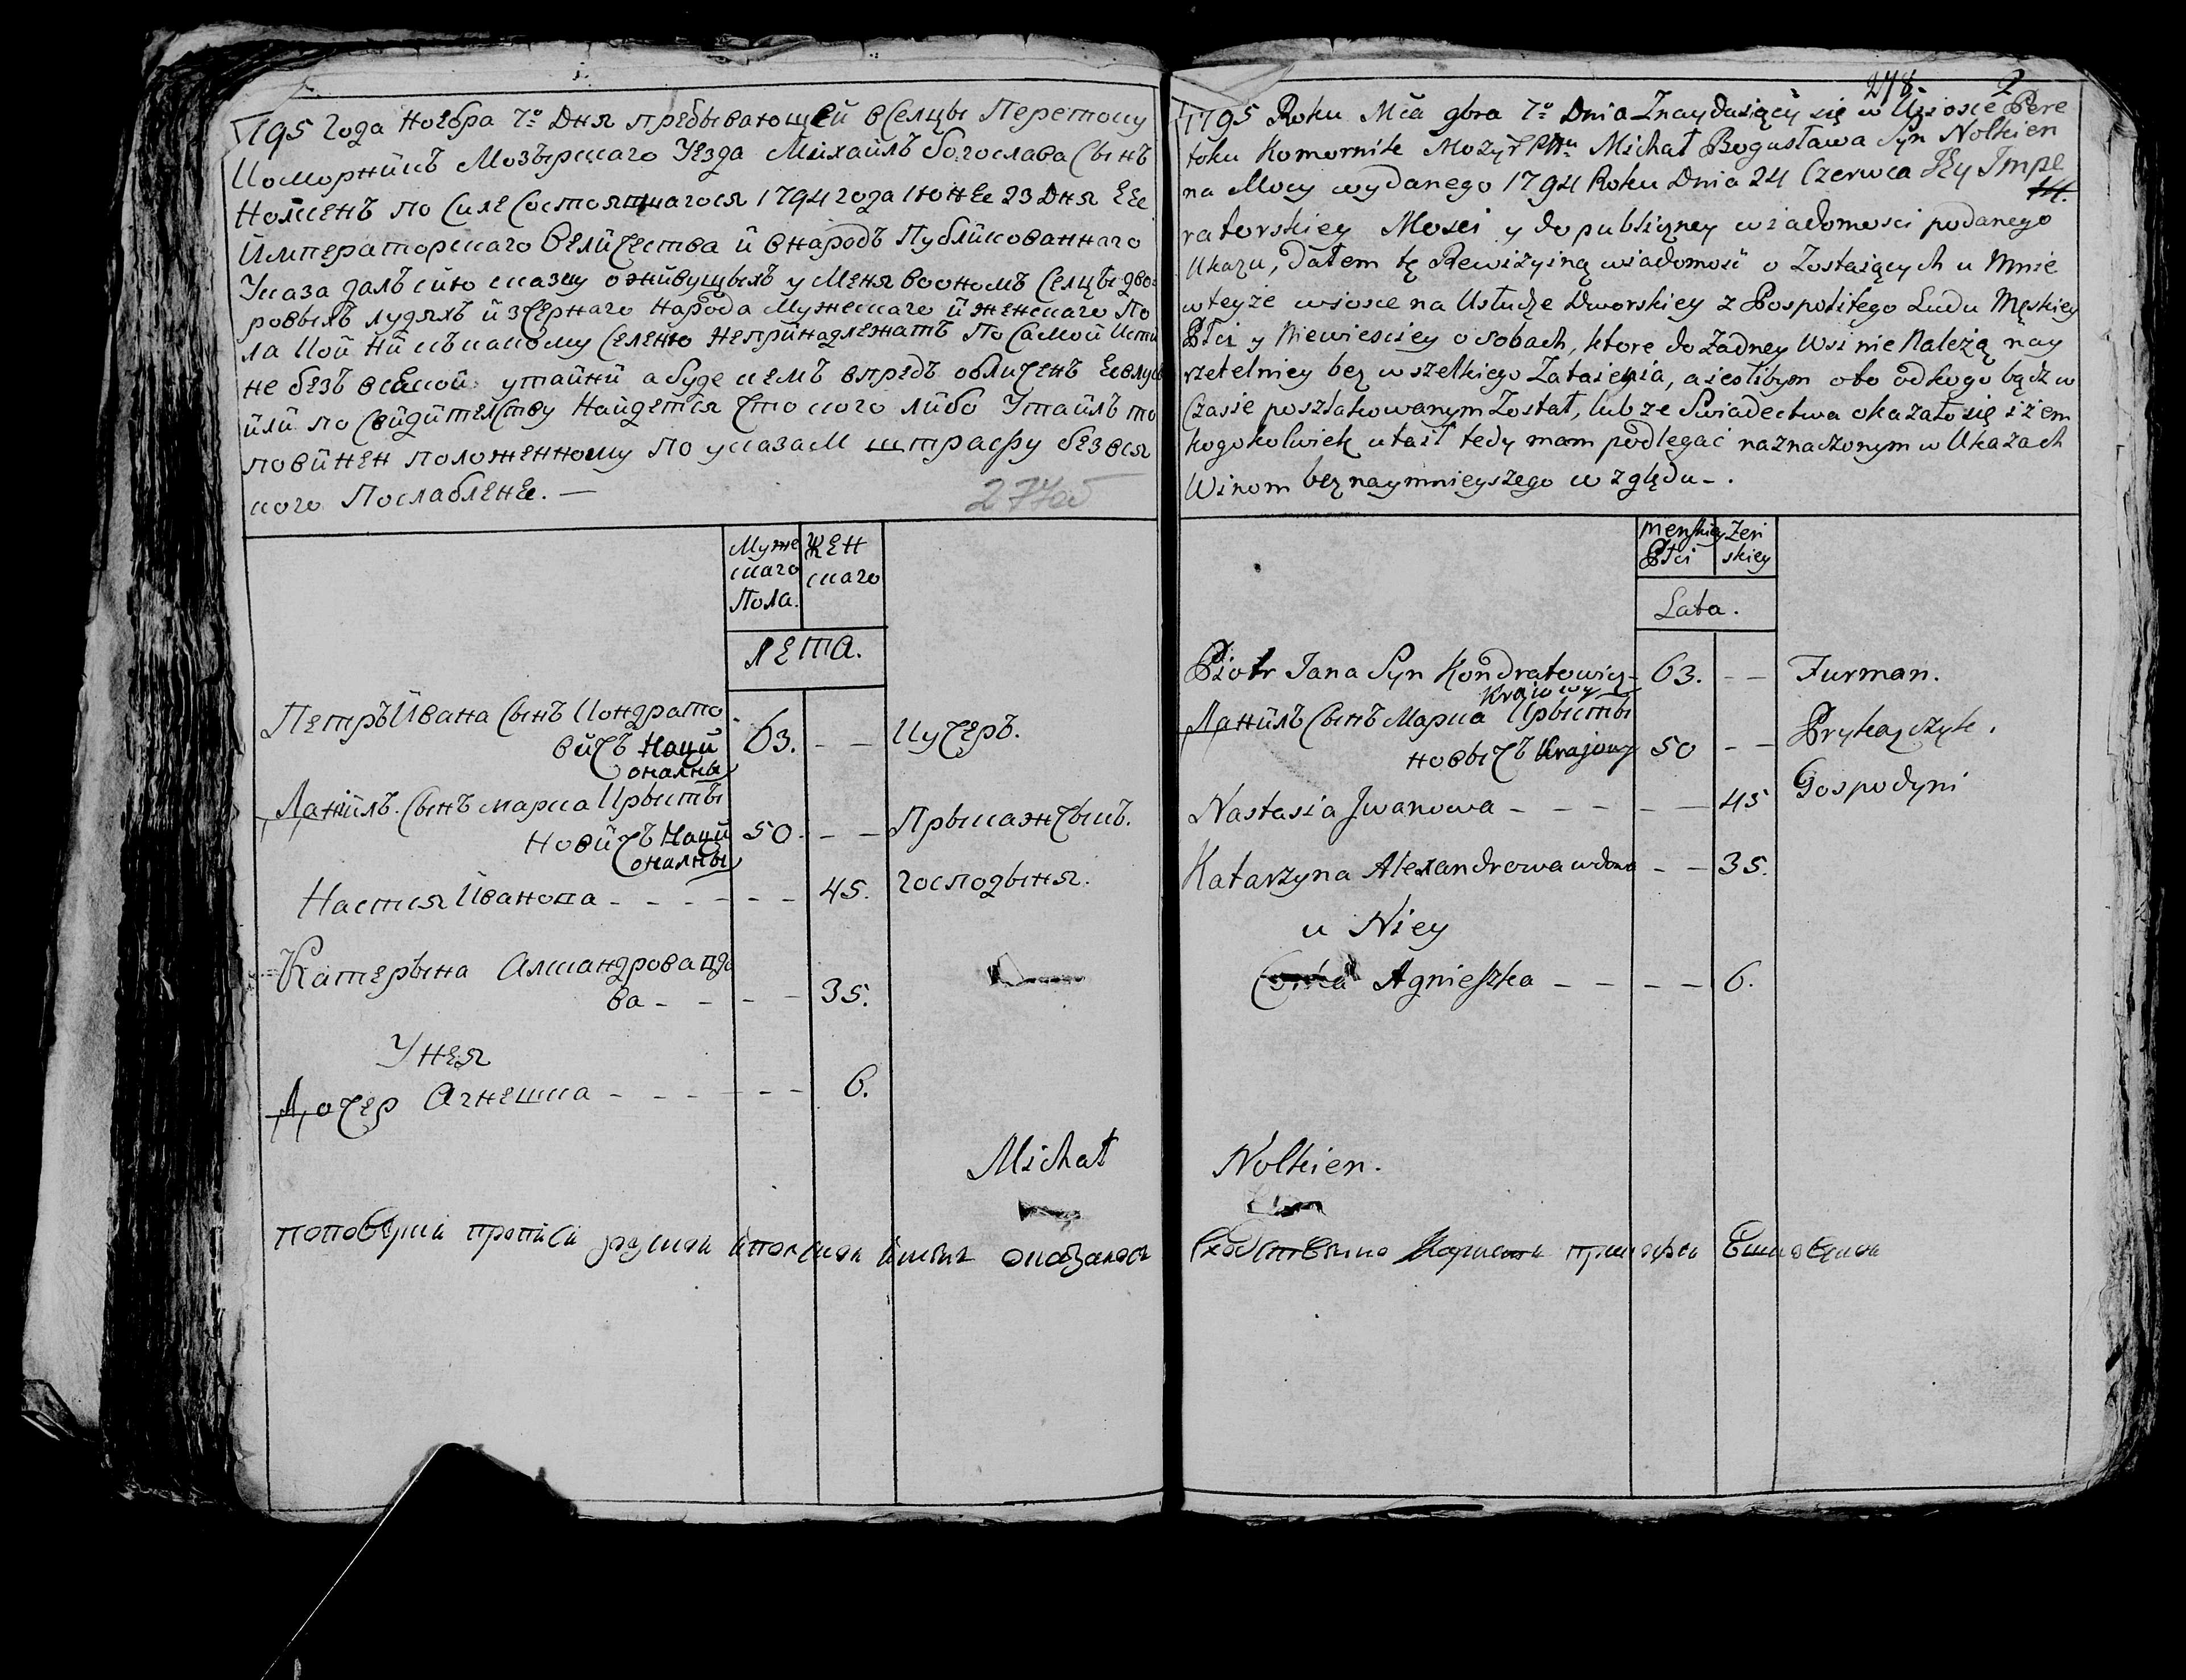 1795 Года Ноебра 7º Дня пребывающей вСелцы Перетоку
Коморникъ Мозырскаго Уезда Михаилъ богослава Сынъ
Нолкенъ по Силе Состоявшагося 1794 года Юнее 23 Дня Ее
Императорскаго Величества и внародъ Публикованнаго
Указа далъ сию сказку оживущыхъ у Меня воономъ Селцы дво
ровыхъ лудяхъ изчернаго Народа Мужескаго и женскаго По
ла Кои ни къ какому Селеню Непринадлежатъ По Самой Исти
не безъ всякой утайки а буде кемъ впредъ обличенъ
или по Свидителству Найдется Что кого либо Утаилъ то
повинен положенному по указам штрафу безвся
кого Послаблене. —
277об
Муже
скаго
Пола.
Жен
скаго
Лета.
Петръ Ивана Сынъ Кондрато
вичъ Наци
оналны
63. - - Кучеръ.
Данилъ Сынъ марка Крысты
новичъ Наци
оналны
50. - - Прыкажчыкъ.
Настся Иванова - - - - - - 45. господыня.
Катерына Алксандрова вдо
ва - - - - 35.
Унея
Дочер Агнешка - - - - - 6.
Michał
278. 2
1795 Roku Mca 9bra 7º Dnia Znayduiący się w Wiosce Pere
toku Komornik Mozyr Pttu Michał Bogusława Syn Nolkien
na Mocy wydanego 1794 Roku Dnia 24 Czerwca Jey Impe
ratorskiey Mosci y do publiczney wiadomosci podanego
Ukazu, Dałem tę Rewizyiną wiadomość o Zostaiących u Mnie
w teyże wiosce na Usłudze Dworskiey z Pospolitego Ludu Męskiey
Płci y Niewiesciey osobach, ktore do Zadney Wsi nie Nalezą nay
rzetelniey bez wszelkiego Zataienia, a iesłibym oto od kogo bądz w
Czasie poszlakowanym Został, lub ze Swiadectwa okazało się iżem
kogokolwiek utaił tedy mam podlegać naznaczonym w Ukazach
Winom bez naymnieyszego względu - .
Menskiey
Płci
Zen
skiey
Lata.
Piotr Jana Syn Kondratowicz 63. - - Furman.
Kraiowy
Данилъ Сынъ Марка Крысты
новычъ Krajowy 50 - - Prykazczyk.
Nastasia Jwanowa - - - - - 45 Gospodyni
Katarzyna Alexandrowa wdowa - - 35.
u Niey
Corka Agnieszka - - - - 6.
Nolkien.